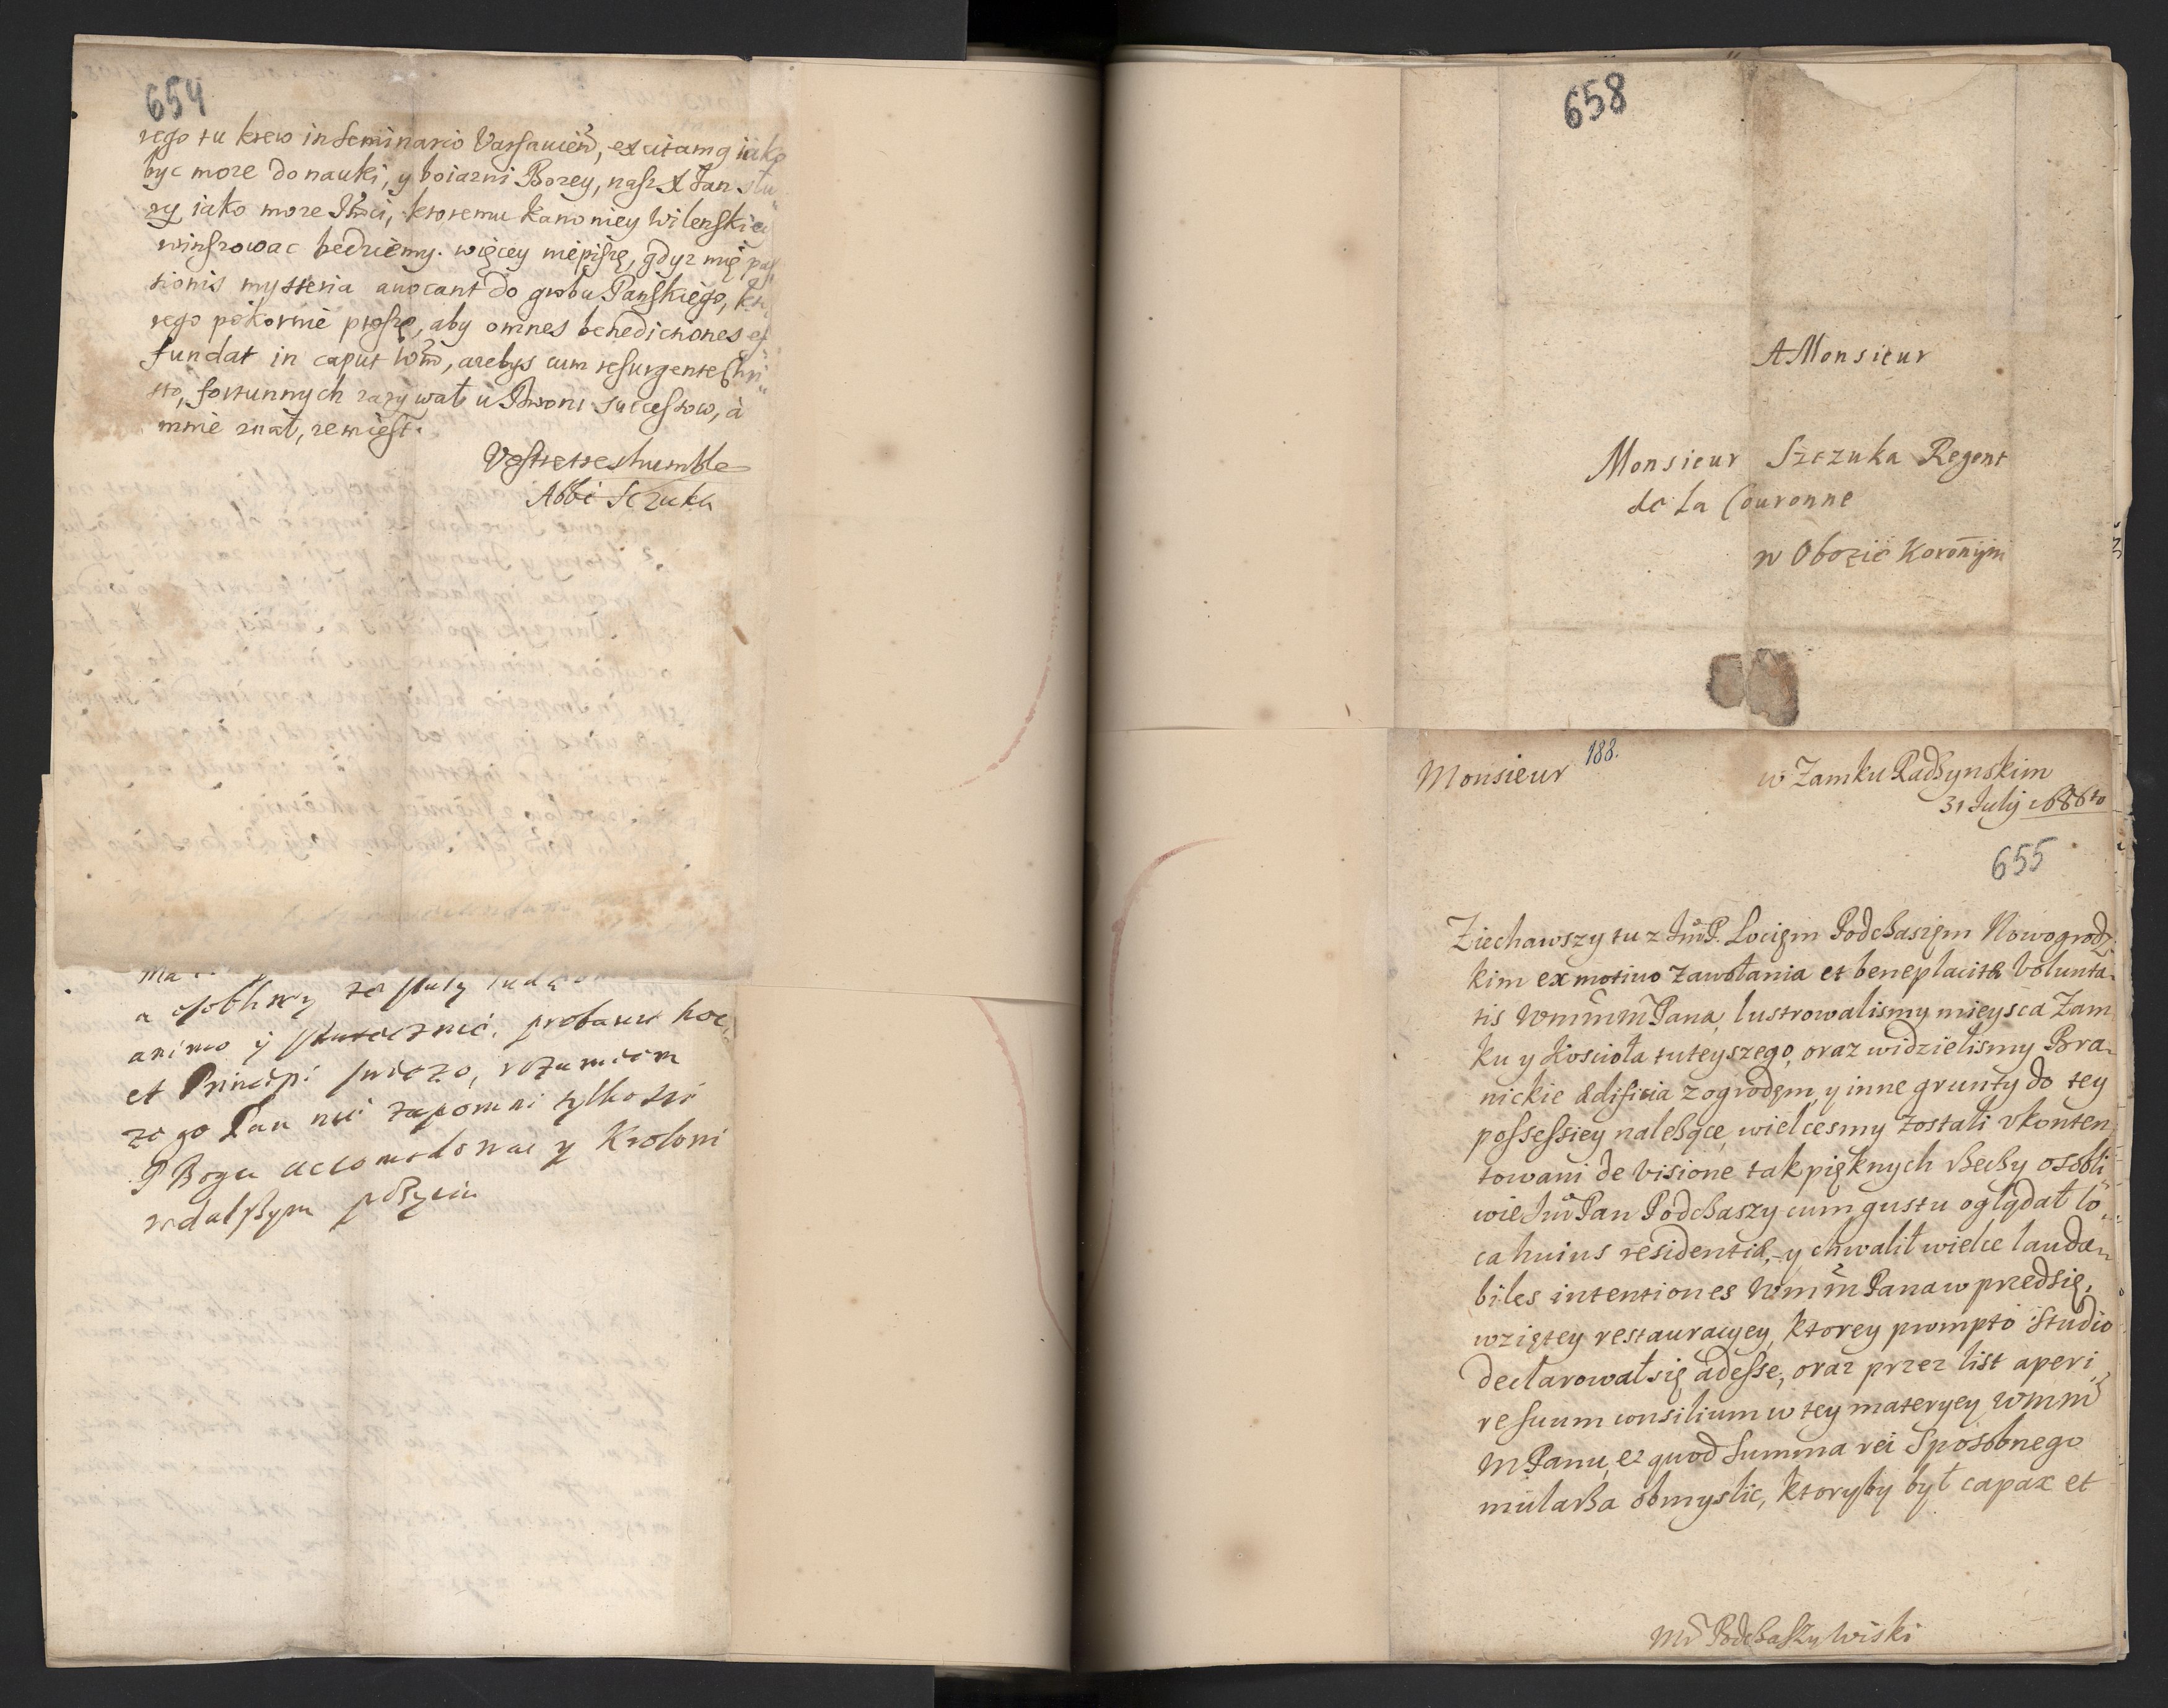 654
rego tu krew in Seminario Varsavien, excitamq iako
byc moze do nauki, y boiazni Bozey, nasz X Jan słu
zy iako moze JMci, ktoremu kanoniey Wilenskiey
winszowac bedziemy. więcey niepiszę, gdyz mię pas
sionis mysteria avocant do grobu Panskiego, kto
rego pokornie proszę, aby omnes benedictiones ef
fundat in caput Wm, azebys cum resurgente Chri
sto, fortunnych zazywał u Dworu successow, à
mnie znał, ze iest.
Vostre treshumble
Abbé Sczuka
a osobliwy ze
animo y statecznie. probavit hoc
et Principi swiezo, rozumiem
ze go Pan nie zapomni tylko ze
P Bogu accomodowac y Krolowi
w dalszym pozyciu
658
A Monsieur
Monsieur Szczuka Regent
de La Couronne
w Obozie Koronnym
Monsieur 188. w Zamku Radzynskim
31 July 1686to
655
Ziechawszy tu z JmP. Łocięm Podczaszęm Nowogrodz
kim ex motivo zawołania et beneplacitæ Volunta
tis Wmmm Pana, lustrowalismy mieysca Zam
ku y Koscioła tuteyszego, oraz widzielismy Bra
nickie ædificia z ogrodęm, y inne grunty do tey
possessiey nalezące, wielcesmy zostali ukonten
towani de visione tak pięknych rzeczy osobli
wie Jm Pan Podczaszy cum gustu oglądał lo
ca huius residentiæ, y chwalił wielce lauda
biles intentiones Wmm Pana w przedsię
wziętey restauracyey, ktorey prompto studio
declarował się adesse, oraz przez list aperi
re suum consilium w tey materyey Wmm
m Panu, et quod summa rei sposobnego
mularza obmyslic, ktoryby był capax et
Podczaszy